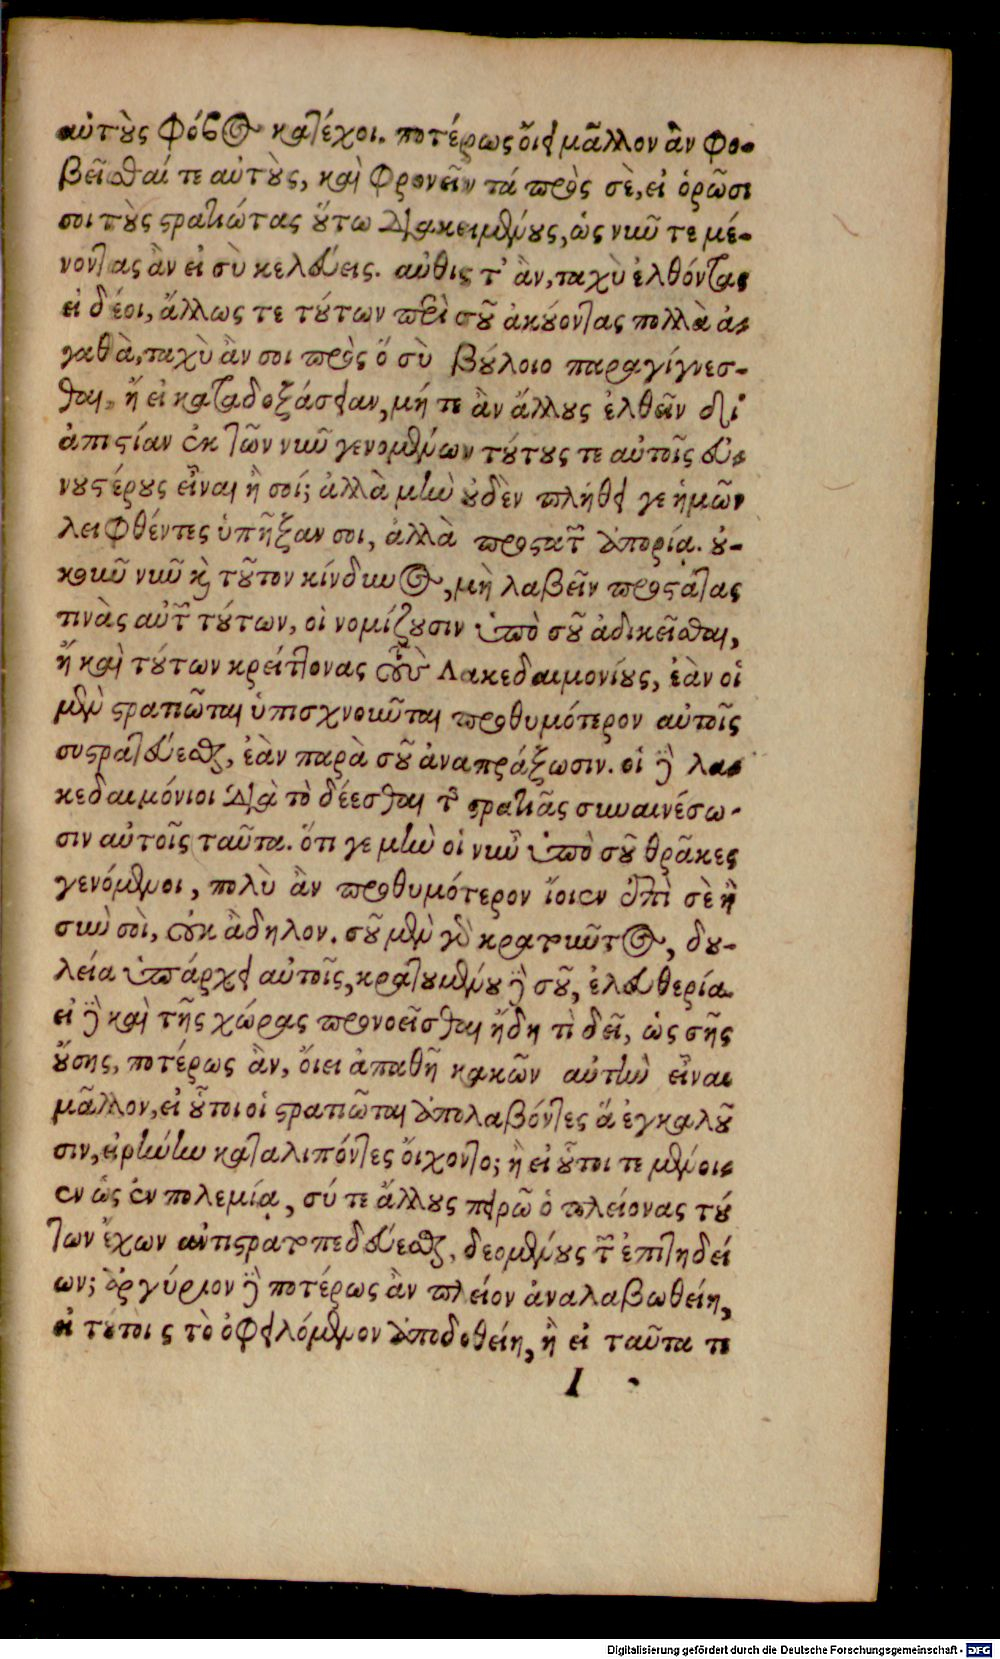 αὐτοὺς φόβος κατέχοι. ποτέρως οἴει μᾶλλον ἂν φο-
βεῖσθαί τε αὐτοὺς, καὶ φρονεῖν τά πρὸς σὲ, εἰ ὁρῶσι
σοι τοὺς στρατιώτας οὕτω διακειμένους, ὡς νῦν τε μέ-
νοντας ἂν εἰ σὺ κελεύεις. αὖθις τ' ἂν, ταχὺ ἐλθόντας
εἰ δέοι, ἄλλως τε τούτων περὶ σοῦ ἀκούοντας πολλὰ ἀ-
γαθὰ, ταχὺ ἂν σοι πρὸς ὅ σὺ βούλοιο παραγίγνεσ-
θαι, ἤ εἰ καταδοξάσειαν, μή τε ἂν ἄλλους ἐλθεῖν δι'
ἀπιστίαν ἐκ τῶν νῦν γενομένων τούτους τε αὐτοῖς εὐ-
νουστέρους εἶναι ἢ σοί; ἀλλὰ μὴν οὐδὲν πλήθει γε ἡμῶν
λειφθέντες ὑπῆξαν σοι, ἀλλὰ προστατῶν ἀπορίᾳ. οὐ-
κοῦν νῦν καὶ τοῦτον κίνδυνος, μὴ λαβεῖν προστάτας
τινὰς αὐτῶν τούτων, οἱ νομίζουσιν ὑπὸ σοῦ ἀδικεῖσθαι,
ἤ καὶ τούτων κρείττονας τοὺς Λακεδαιμονίους, ἐὰν οἱ
μὲν στρατιῶται ὑπισχνοῦνται προθυμότερον αὐτοῖς
συστρατεύεσθαι, ἐὰν παρὰ σοῦ ἀναπράξωσιν. οἱ δὲ λα-
κεδαιμόνιοι διὰ τὸ δέεσθαι τῆς στρατιᾶς συναινέσω-
σιν αὐτοῖς ταῦτα. ὅτι γε μὴν οἱ νῦν ὑπὸ σοῦ θρᾶκες
γενόμενοι, πολὺ ἂν προθυμότερον ἴοιεν ἐπὶ σὲ ἢ
σὺν σοὶ, οὐκ ἄδηλον. σοῦ μὲν γὰρ κρατοῦντος, δου-
λεία ὑπάρχει αὐτοῖς, κρατουμένου δὲ σοῦ, ἐλευθερία.
εἰ δὲ καὶ τῆς χώρας προνοεῖσθαι ἤδη τὶ δεῖ, ὡς σῆς
οὔσης, ποτέρως ἂν, ὄιει ἀπαθῆ κακῶν αὐτὴν εἶναι
μᾶλλον, εἰ οὗτοι οἱ στρατιῶται ἀπολαβόντες ἅ ἐγκαλοῦ
σιν, εἰρήνην καταλιπόντες ὄιχοντο; ἢ εἰ οὗτοι τε μένοι-
εν ὡς ἐν πολεμίᾳ, σύ τε ἄλλους πειρῶο πλείονας τού
των ἔχων ἀντιστρατοπεδεύεσθαι, δεομένους τῶν ἐπιτηδεί
ων; ἀργύριον δὲ ποτέρως ἂν πλείον ἀναλαβωθείη,
εἰ τούτοις τὸ ὀφειλόμενον ἀποδοθείη, ἢ εἰ ταῦτα τι
I
Digitalisierung gefördert durch die Deutsche Forschungsgemeinschaft - DFG